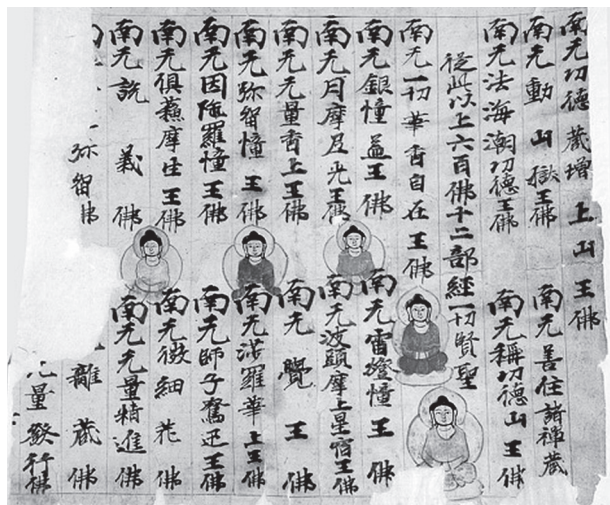 南无功德藏增上山王佛
南无動山嶽王佛 南无善住諸禪藏佛
南无法海潮功德王佛 南无稱功德山王佛
從此以上六百佛十二部經一切賢聖
南无一切華香自在王佛
南无銀憧盖王佛 南无雷燈憧王佛
南无月摩尼光王佛 南无波頭摩上星宿王佛
南无无量香上王佛 南无覺王佛
南无弥留憧王佛 南无娑羅華上王佛
南无因陁羅憧王佛 南无師子奮迅王佛
南无俱蘓摩生王佛 南无微細花佛
南无說義佛 南无无量精進佛
弥留佛 離藏佛
无量發行佛